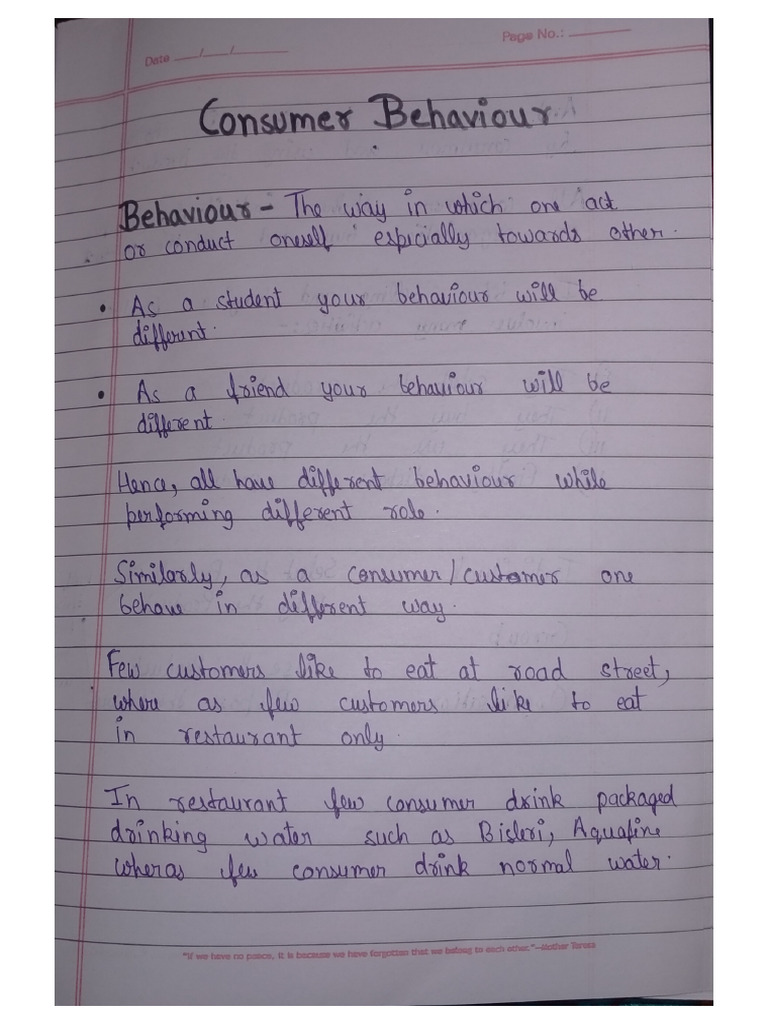 Date __/__/____
Page No.: ____
Consumer Behaviour
Behaviour - The way in which one act
or conduct oneself especially towards other.
• As a student your behaviour will be
different.
• As a friend your behaviour will be
different
Hence, all have different behaviour while
performing different role.
Similarly, as a consumer/customer one
behave in different way.
Few customers like to eat at road street,
where as few customers like to eat
in restaurant only.
In restaurant few consumer drink packaged
drinking water such as Bisleri, Aquafine
wheras few consumer drink normal water.
"If we have no peace, it is because we have forgotten that we belong to each other."–Mother Teresa